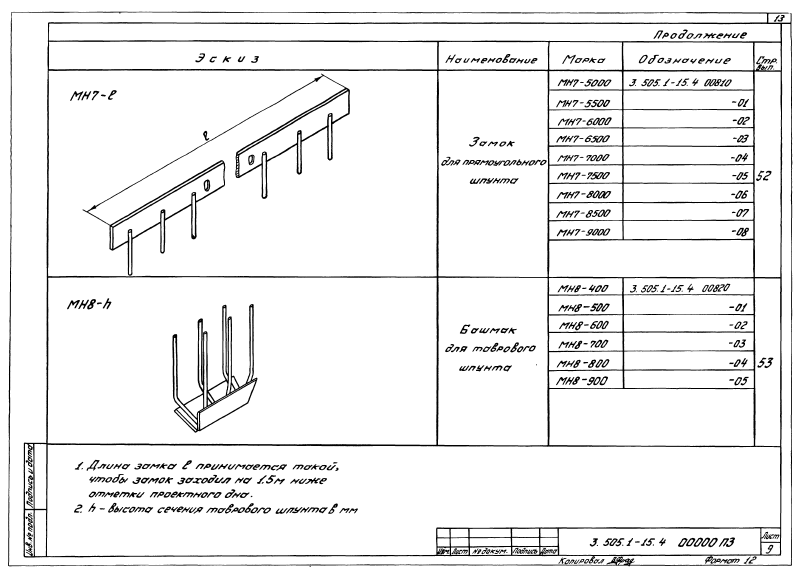 13
Продолжение
Эскиз Наименование Марка Обозначение Стр. вып.
МН7-ℓ
ℓ
Замок
для прямоугольного
шпунта
МН7-5000 3.505.1-15.4 00810
МН7-5500 -01
МН7-6000 -02
МН7-6500 -03
МН7-7000 -04
МН7-7500 -05
МН7-8000 -06
МН7-8500 -07
МН7-9000 -08
52
МН8-h
Башмак
для таврового
шпунта
МН8-400 3.505.1-15.4 00820
МН8-500 -01
МН8-600 -02
МН8-700 -03
МН8-800 -04
МН8-900 -05
53
1. Длина замка ℓ принимается такой,
чтобы замок заходил на 1.5м ниже
отметки проектного дна.
2. h - высота сечения таврового шпунта в мм
Инв.№подл. Подпись и дата
Изм. Лист № докум. Подпись Дата
3.505.1-15.4 00000 ПЗ
Лист
9
Копировал
Формат 12